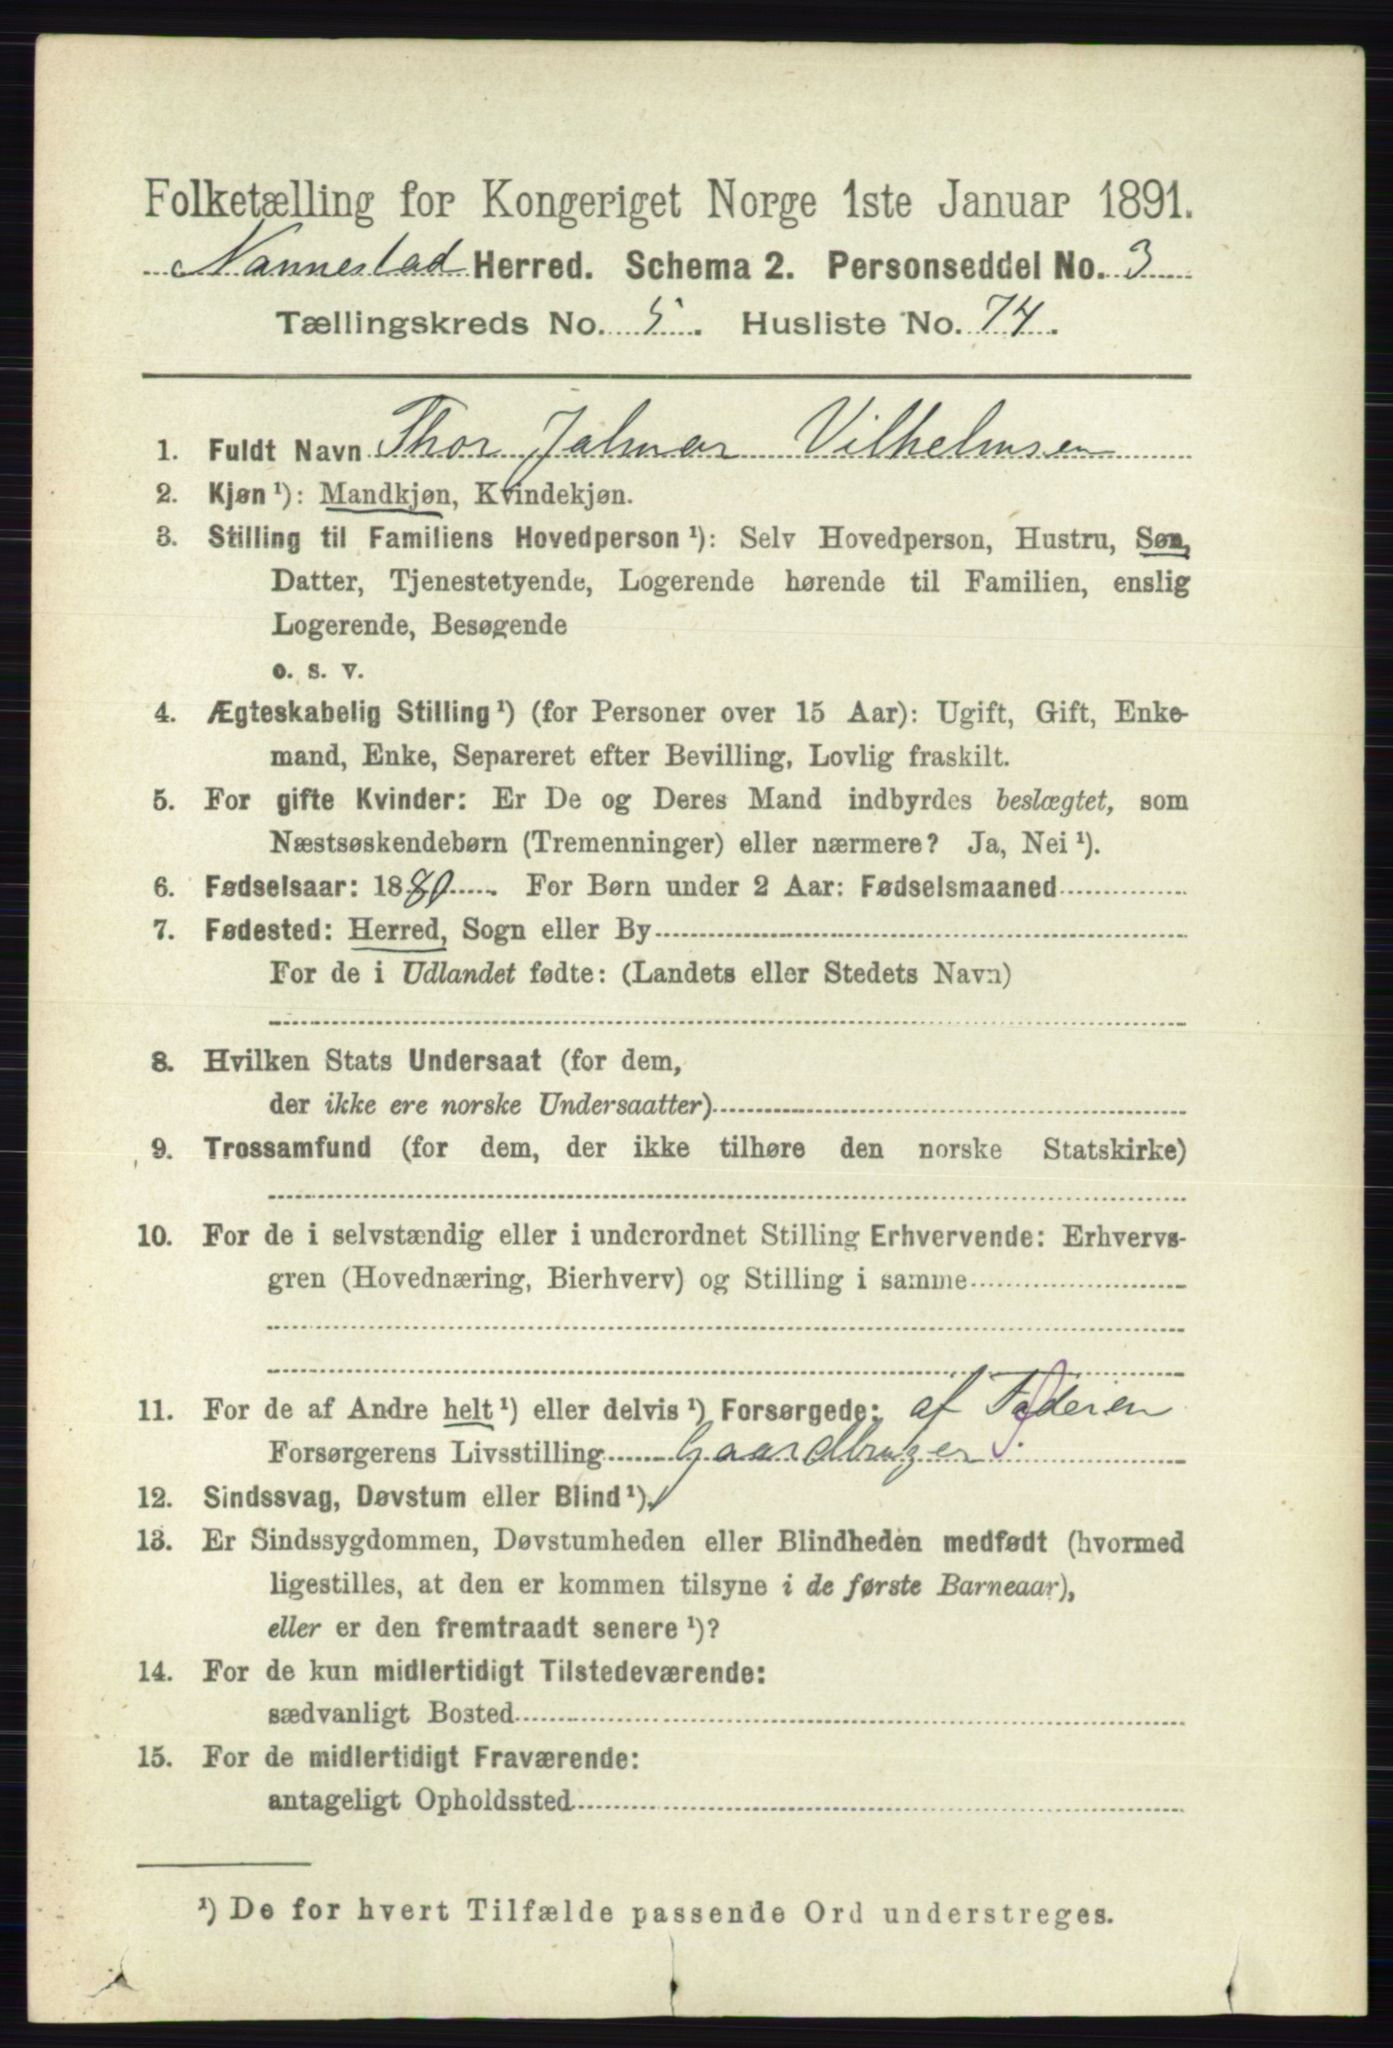 Folketælling for Kongeriget Norge 1ste Januar 1891.
Nannestad Herred. Schema 2. Personseddel No. 3
Tællingskreds No. 5. Husliste No. 74.
1. Fuldt Navn Thor Jalmar Vilhelmsen
2. Kjøn ¹): Mandkjøn, Kvindekjøn.
3. Stilling til Familiens Hovedperson ¹): Selv Hovedperson, Hustru, Søn,
Datter, Tjenestetyende, Logerende hørende til Familien, enslig
Logerende, Besøgende
o. s. v.
4. Ægteskabelig Stilling ¹) (for Personer over 15 Aar): Ugift, Gift, Enke-
mand, Enke, Separeret efter Bevilling, Lovlig fraskilt.
5. For gifte Kvinder: Er De og Deres Mand indbyrdes beslægtet, som
Næstsøskendebørn (Tremenninger) eller nærmere? Ja, Nei ¹).
6. Fødselsaar: 1880. For Børn under 2 Aar: Fødselsmaaned
7. Fødested: Herred, Sogn eller By
For de i Udlandet fødte: (Landets eller Stedets Navn)
8. Hvilken Stats Undersaat (for dem,
der ikke ere norske Undersaatter)
9. Trossamfund (for dem, der ikke tilhøre den norske Statskirke)
10. For de i selvstændig eller i underordnet Stilling Erhvervende: Erhvervs-
gren (Hovednæring, Bierhverv) og Stilling i samme
11. For de af Andre helt ¹) eller delvis ¹) Forsørgede: af Faderen
Forsørgerens Livsstilling Gaardbruger
12. Sindssvag, Døvstum eller Blind ¹).
13. Er Sindssygdommen, Døvstumheden eller Blindheden medfødt (hvormed
ligestilles, at den er kommen tilsyne i de første Barneaar),
eller er den fremtraadt senere ¹)?
14. For de kun midlertidigt Tilstedeværende:
sædvanligt Bosted
15. For de midlertidigt Fraværende:
antageligt Opholdssted
¹) De for hvert Tilfælde passende Ord understreges.